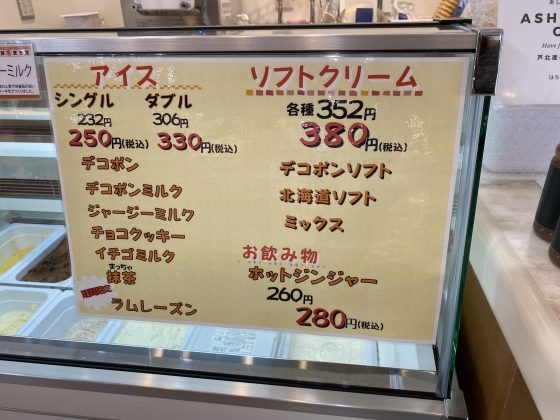 アイス
シングル ダブル
232円 306円
250円(税込) 330円(税込)
デコポン
デコポンミルク
ジャージーミルク
チョコクッキー
イチゴミルク
まっちゃ
抹茶
期間限定
ラムレーズン
ソフトクリーム
各種352円
380円(税込)
デコポンソフト
北海道ソフト
ミックス
お飲み物
ホットジンジャー
260円
280円(税込)
ーミルク
ASH